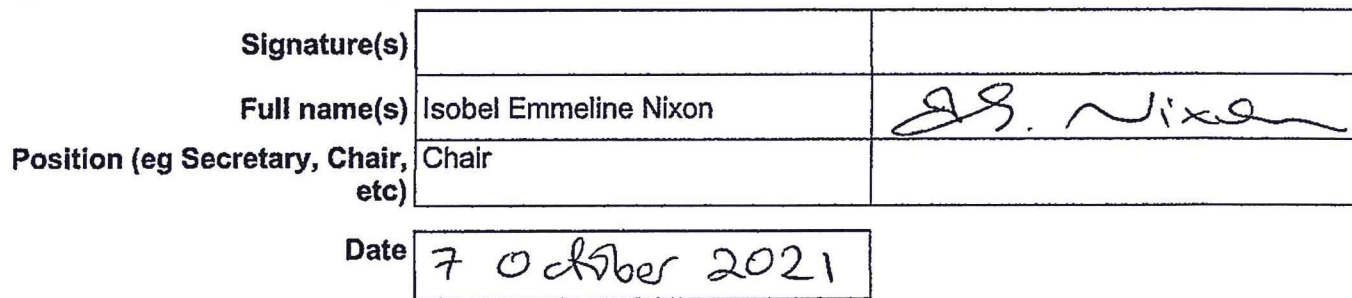 Signature(s)
Full name(s) Isobel Emmeline Nixon Nixon
Position (eg Secretary, Chair, Chair
etc)
Date 7 October 2021